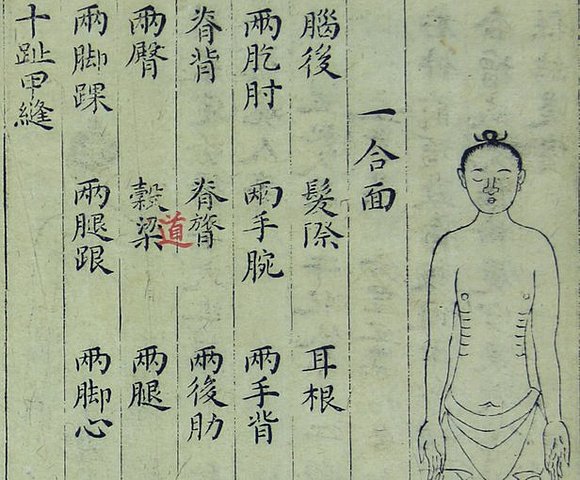 一合面
腦後 髮際 耳根
兩肐肘 兩手腕 兩手背
脊背 脊膂 兩後肋
兩臀 穀梁 道 兩腿
兩脚踝 兩腿跟 兩脚心
十趾甲縫